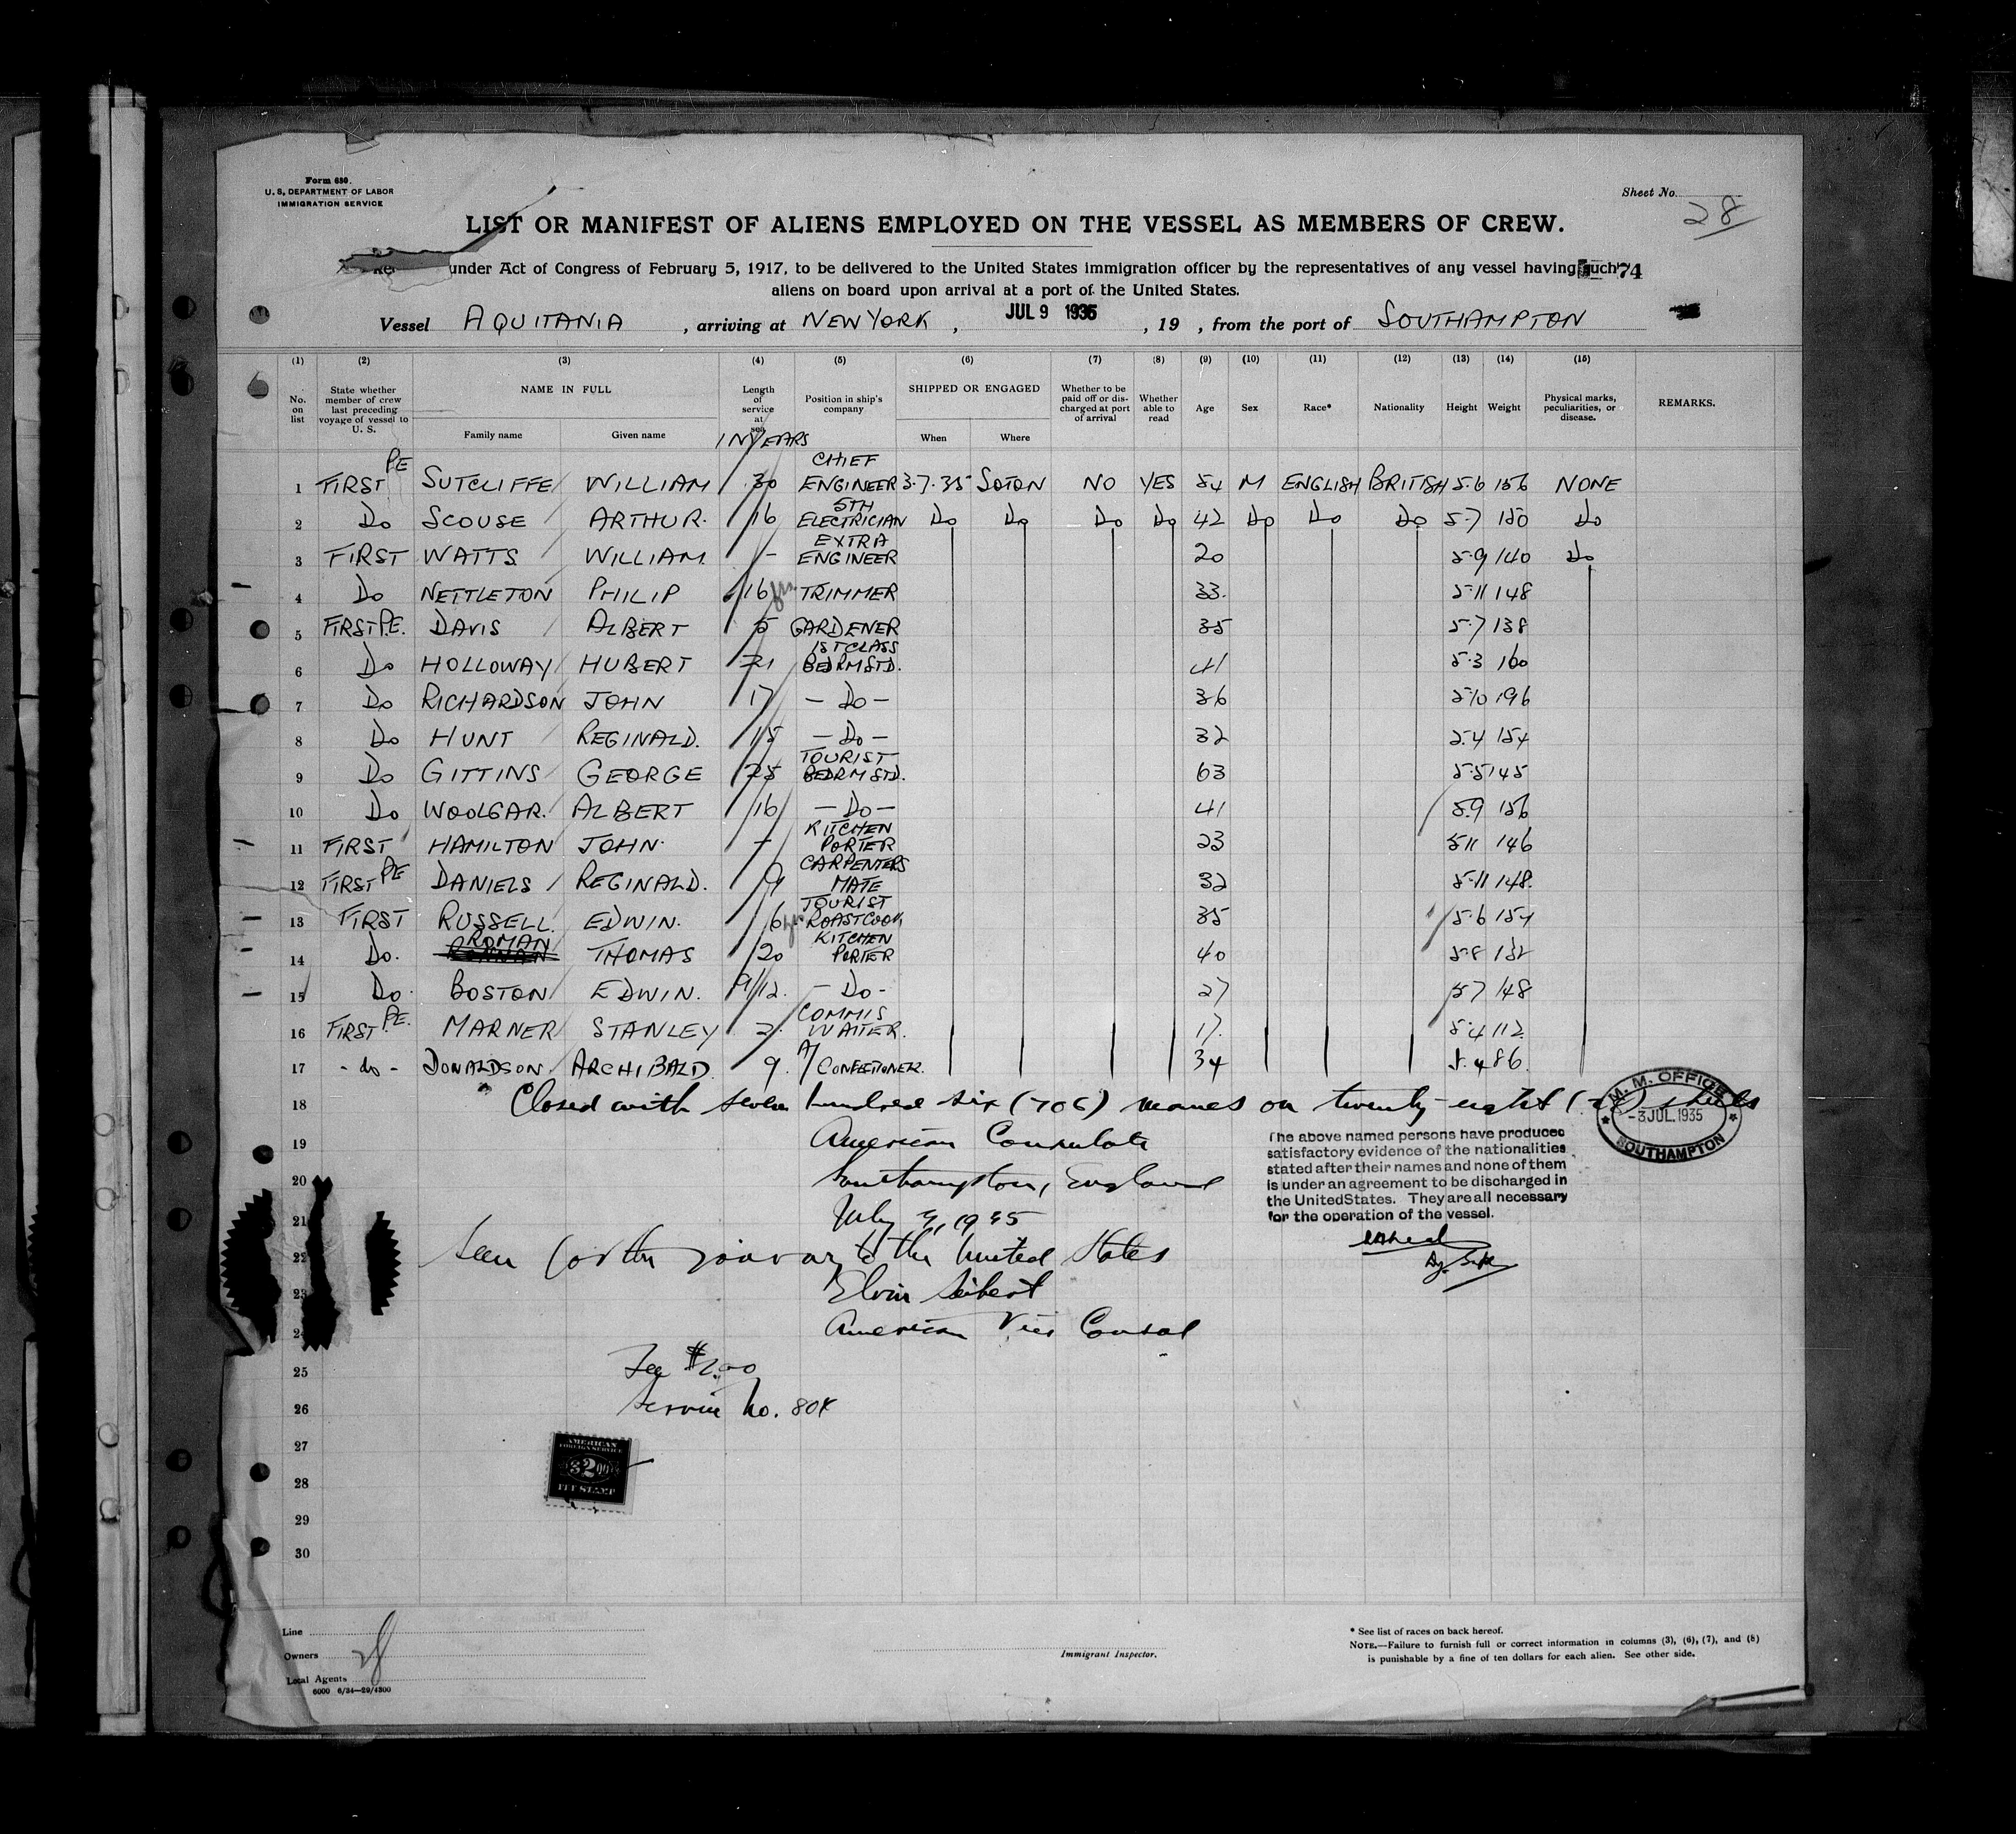 Form 680.
U. S. DEPARTMENT OF LABOR
IMMIGRATION SERVICE
Sheet No. 28
LIST OR MANIFEST OF ALIENS EMPLOYED ON THE VESSEL AS MEMBERS OF CREW.
under Act of Congress of February 5, 1917, to be delivered to the United States immigration officer by the representatives of any vessel having such 74
aliens on board upon arrival at a port of the United States.
Vessel AQUITANIA , arriving at NEW YORK , JUL 9 1935 , 19 , from the port of SOUTHAMPTON
(1) (2) (3) (4) (5) (6) (7) (8) (9) (10) (11) (12) (13) (14) (15)
No. on list State whether member of crew last preceding voyage of vessel to U. S. NAME IN FULL Family name Given name Length of service at sea IN YEARS Position in ship's company SHIPPED OR ENGAGED When Where Whether to be paid off or discharged at port of arrival Whether able to read Age Sex Race* Nationality Height Weight Physical marks, peculiarities, or disease. REMARKS.
1 FIRST PE SUTCLIFFE WILLIAM 30 CHIEF ENGINEER 3.7.35 SOTON NO YES 54 M ENGLISH BRITISH 5.6 156 NONE
2 Do SCOUSE ARTHUR. 16 5TH ELECTRICIAN Do Do Do Do 42 Do Do Do 5.7 150 Do
3 FIRST WATTS WILLIAM. - EXTRA ENGINEER 20 5.9 140 Do
4 Do NETTLETON PHILIP 16 TRIMMER 33. 5.11 148
5 FIRST P.E. DAVIS ALBERT 5 GARDENER 35 5.7 138
6 Do HOLLOWAY HUBERT 21 1ST CLASS BEDRM STD. 41 5.3 160
7 Do RICHARDSON JOHN 17 - Do - 36 5.10 196
8 Do HUNT REGINALD. 15 - Do - 32 5.4 154
9 Do GITTINS GEORGE 25 TOURIST BEDRM STD. 63 5.5 145
10 Do WOOLGAR. ALBERT 16 - Do - 41 5.9 156
11 FIRST HAMILTON JOHN. - KITCHEN PORTER 23 5.11 146
12 FIRST PE DANIELS REGINALD. 9 CARPENTERS MATE 32 5.11 148.
13 FIRST RUSSELL. EDWIN. 6 TOURIST ROAST COOK 35 5.6 154
14 Do. ROMAN THOMAS 20 KITCHEN PORTER 40 5.8
15 Do. BOSTON EDWIN. 9/12. - Do - 27 5.7 148
16 FIRST P.E. MARNER STANLEY 2. COMMIS WAITER. 17. 5.4 112.
17 - do - DONALDSON ARCHIBALD. 9. A/ CONFECTIONER. 34 5.4 86.
18 Closed with seven hundred six (706) names on twenty-eight (28) sheets
M. M. OFFICE
-3 JUL. 1935
SOUTHAMPTON
19 American Consulate
20 Southampton, England
21 July 3, 1935
The above named persons have produced
satisfactory evidence of the nationalities
stated after their names and none of them
is under an agreement to be discharged in
the United States. They are all necessary
for the operation of the vessel.
22 Seen for the journey to the United States
23 Elvin Seibert
24 American Vice Consul
25 Fee $2.00
26 Service No. 804
27
28
29
30
AMERICAN
FOREIGN SERVICE
$2.00
FEE STAMP
Line
Owners
Local Agents
6000 6/34—29/4300
Immigrant Inspector.
* See list of races on back hereof.
NOTE.—Failure to furnish full or correct information in columns (3), (6), (7), and (8)
is punishable by a fine of ten dollars for each alien. See other side.